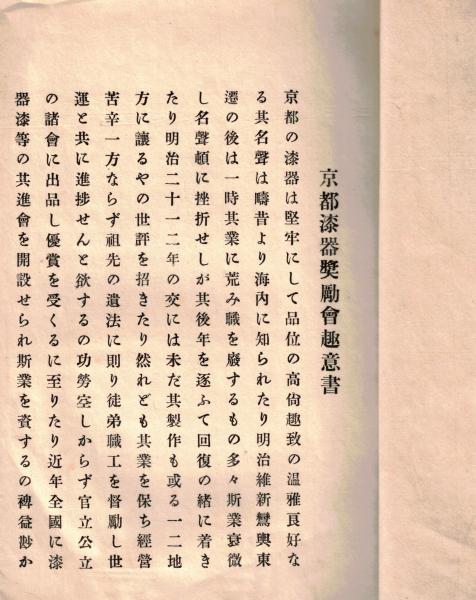 京都漆器奬勵會趣意書
京都の漆器は堅牢にして品位の高尙趣致の温雅良好な
る其名聲は疇昔より海內に知られたり明治維新鸞輿東
遷の後は一時其業に荒み職を廢するもの多々斯業衰微
し名聲頓に挫折せしが其後年を逐ふて回復の緖に着き
たり明治二十一二年の交には未だ其製作も或る一二地
方に讓るやの世評を招きたり然れども其業を保ち經營
苦辛一方ならず祖先の遺法に則り徒弟職工を督勵し世
運と共に進捗せんと欲するの功勞空しからず官立公立
の諸會に出品し優賞を受くるに至りたり近年全國に漆
器漆等の共進會を開設せられ斯業を資するの裨益尠か